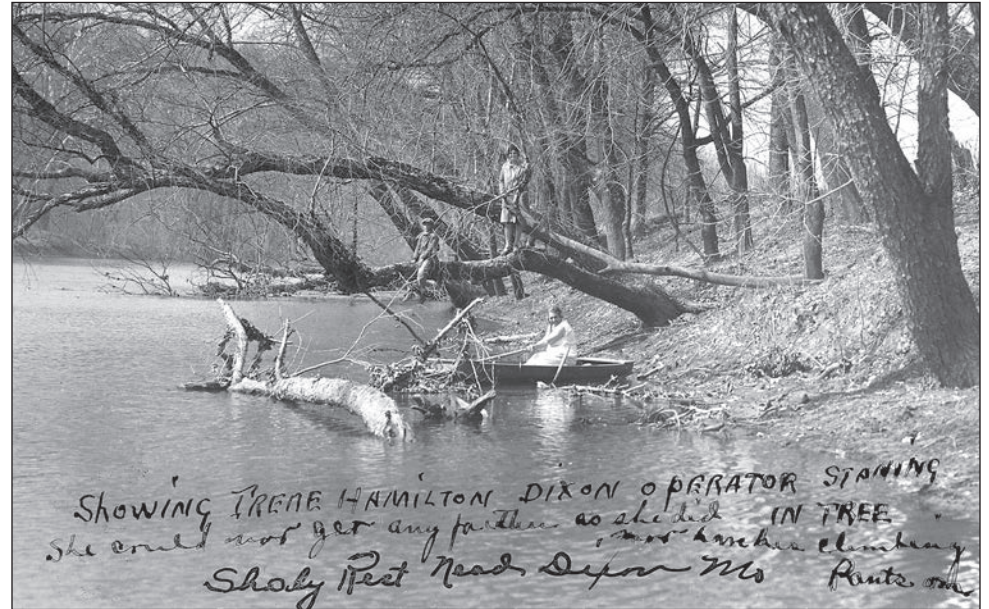 Showing IRENE HAMILTON DIXON OPERATOR STANING
IN TREE
She could nor get any farther as she did nor have her climbing
Pants on
Shady Rest Near Dixon Mo